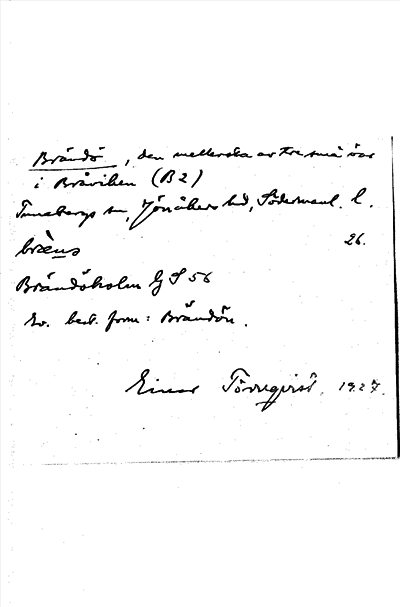 Brändö, den mellersta av tre små öar
i Bråviken (B2)
Tunabergs sn, Jönåkers hd, Södermanl. l.
26.
Brändöholm GS 56
Ev. best. form: Brändön.
Einar Törnqvist. 1927.